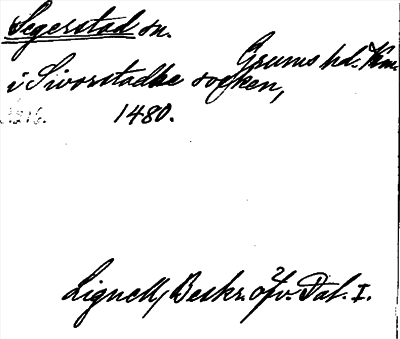 Segerstad sn.
Grums hd. Vrm.
i Sivorstadhe socken,
1480.
Lignell, Beskr. öfv. Dal. I.